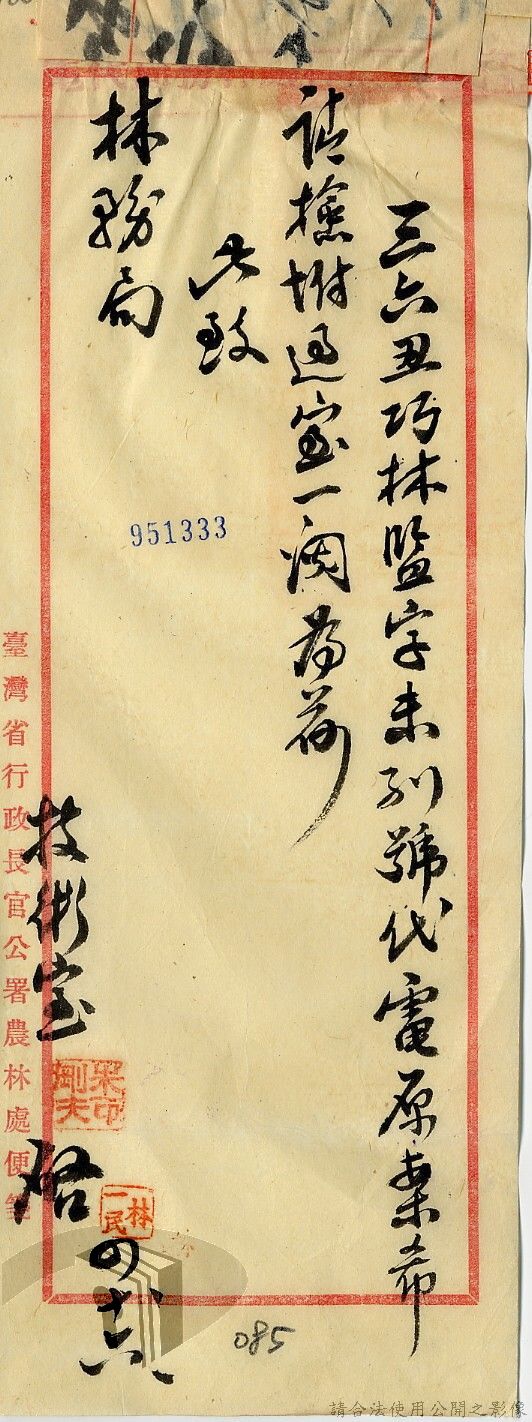 三六丑巧林監字未列號代電原案希
請檢附過室一閱為荷
此致
林務局
技術室
啓
四
林一民
951333
臺灣省行政長官公署農林處便箋
085
請合法使用公開之影像